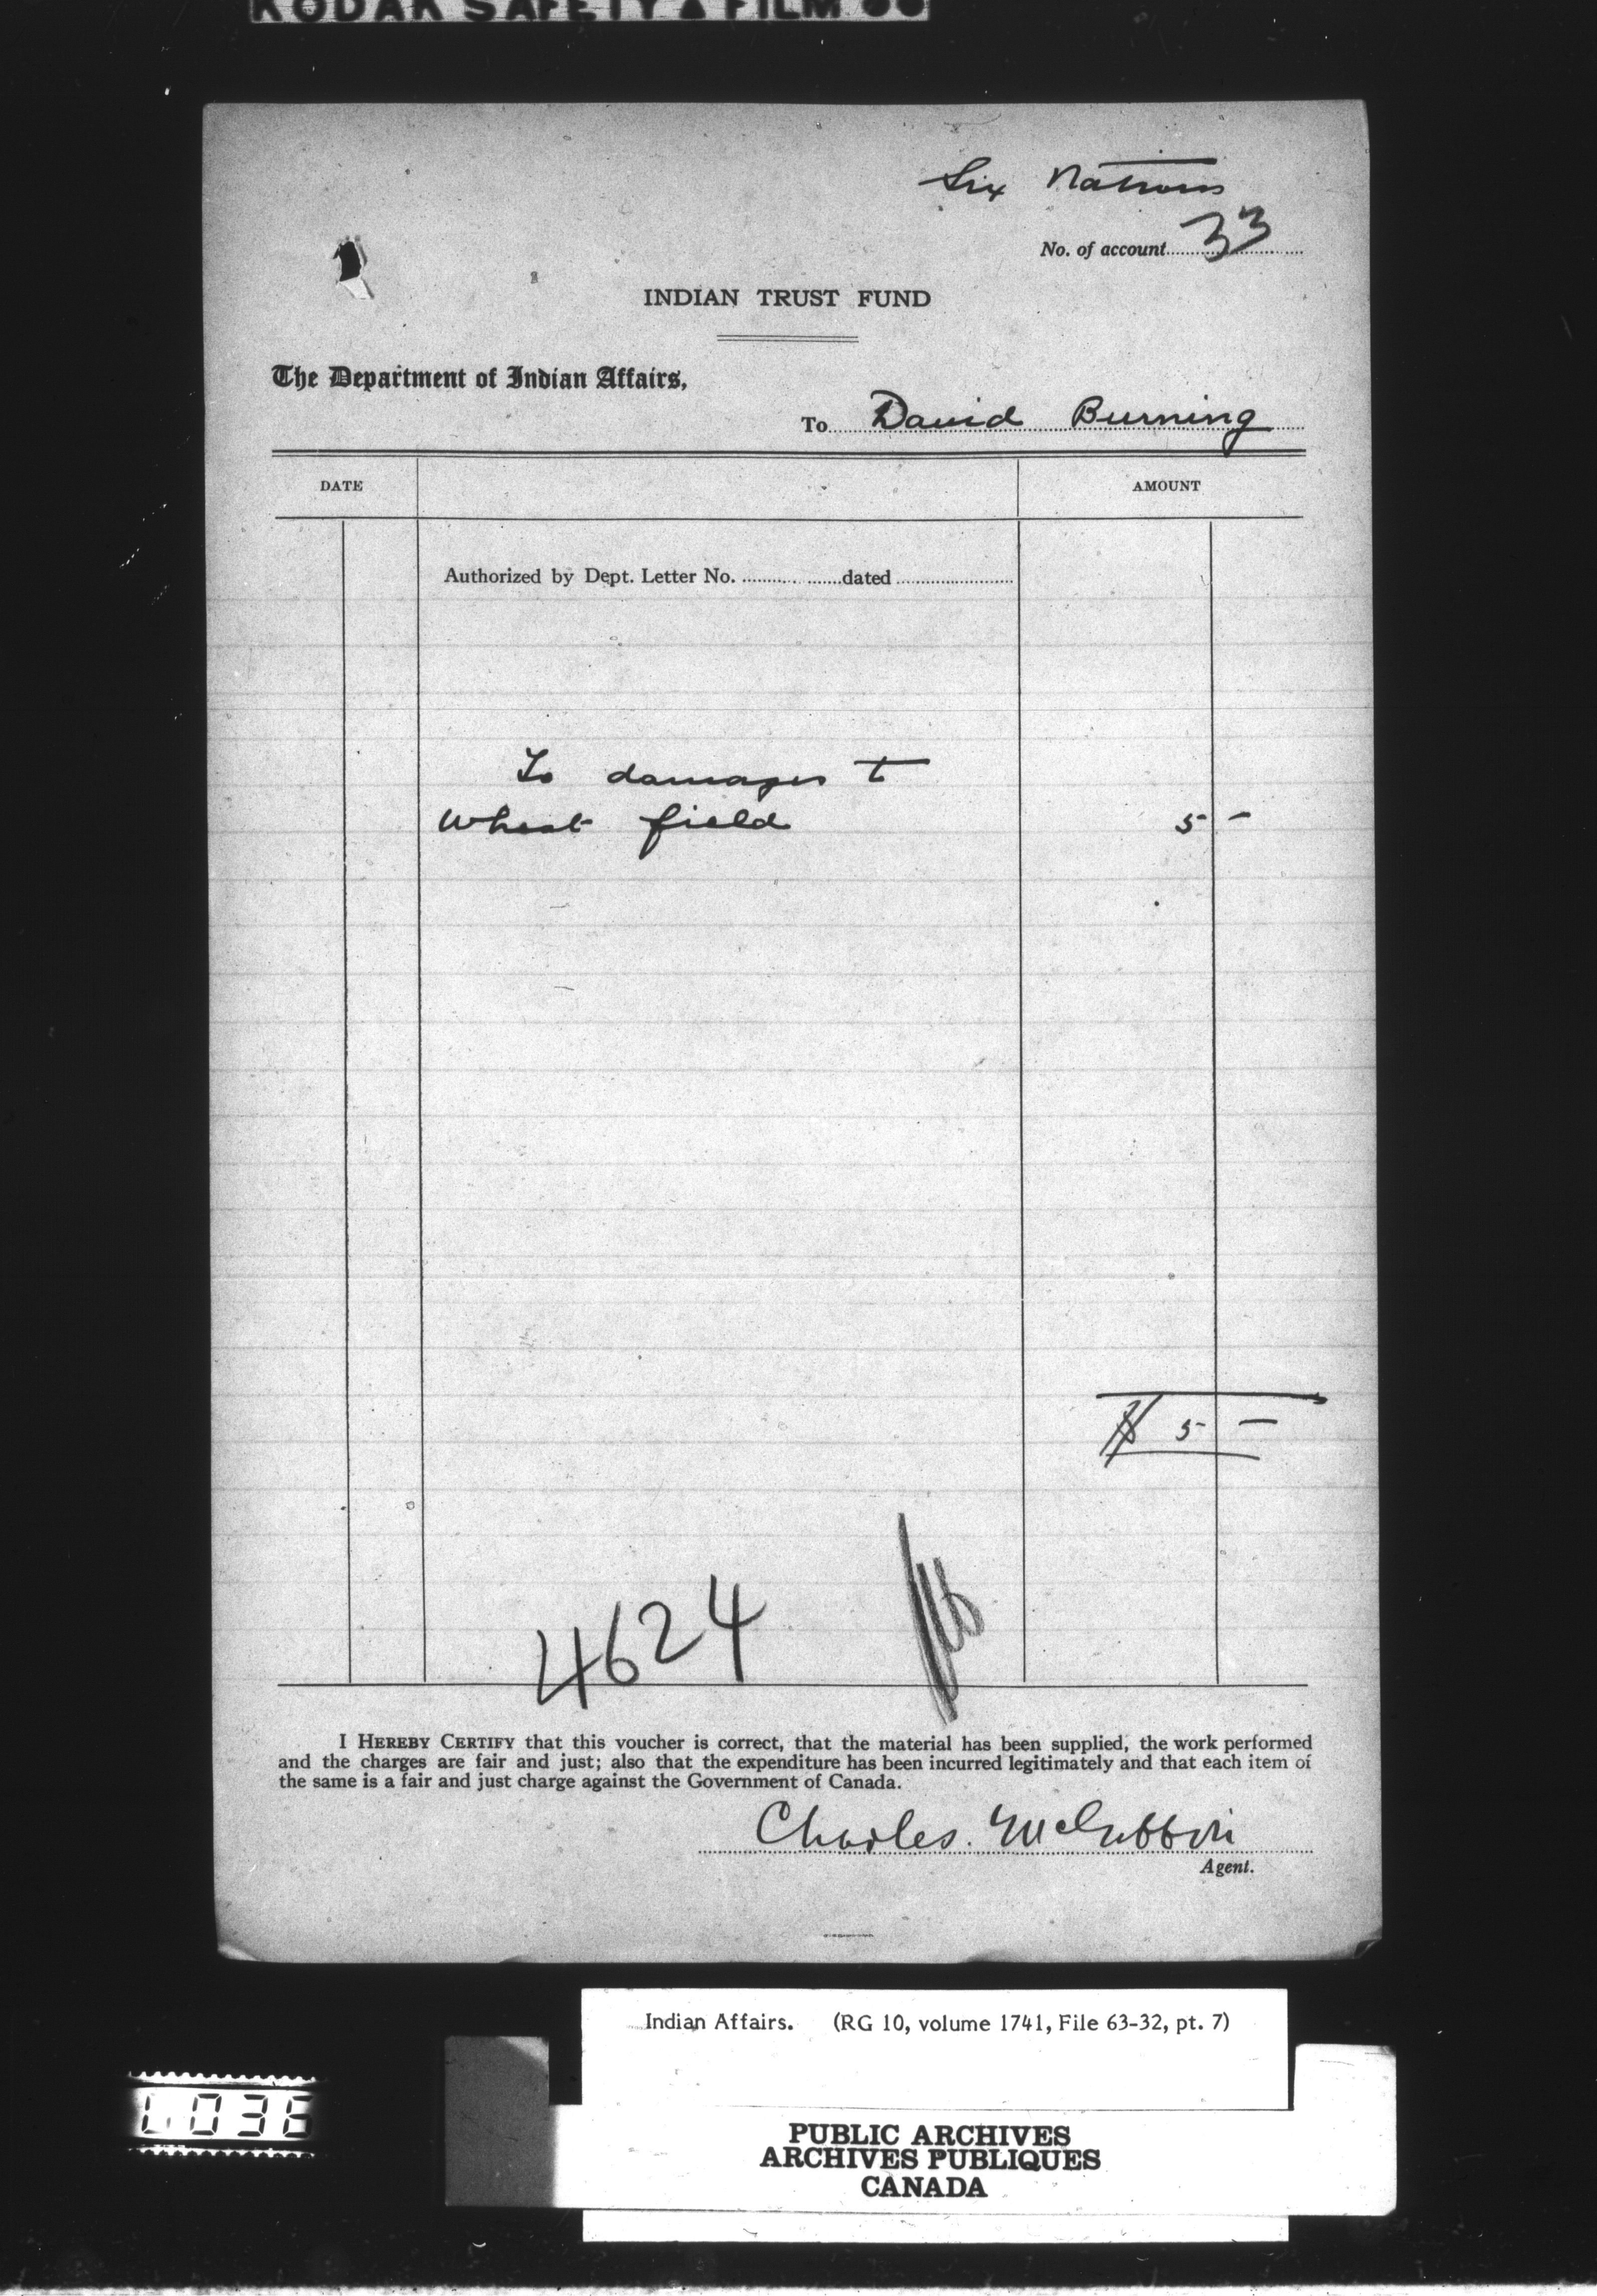 KODAK SAFETY ▲ FILM ●●
Six Nations
No. of account 33
INDIAN TRUST FUND
The Department of Indian Affairs,
To David Burning
DATE AMOUNT
Authorized by Dept. Letter No. dated
To damages to
wheat field 5 –
$ 5 –
4624
I HEREBY CERTIFY that this voucher is correct, that the material has been supplied, the work performed
and the charges are fair and just; also that the expenditure has been incurred legitimately and that each item of
the same is a fair and just charge against the Government of Canada.
Charles McGibbon
Agent.
Indian Affairs. (RG 10, volume 1741, File 63-32, pt. 7)
PUBLIC ARCHIVES
ARCHIVES PUBLIQUES
CANADA